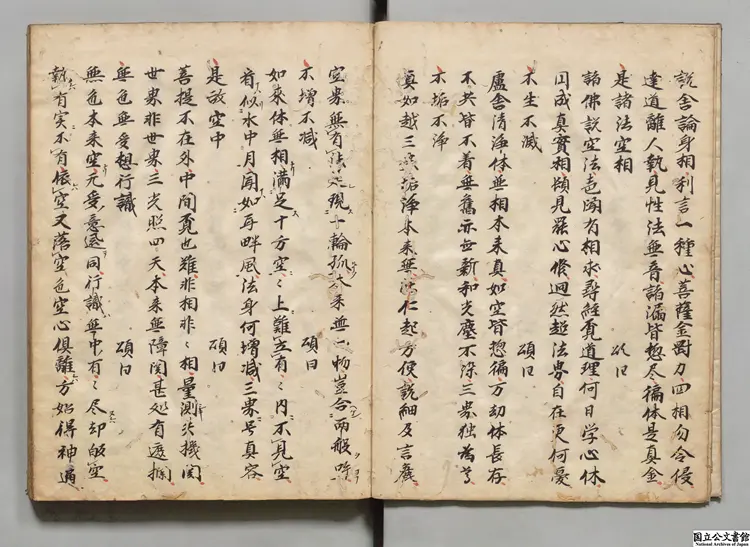 説舎論身相利言一種心菩薩金剛刀四相勿令侵
達道離人執見性法無音諸漏皆惣尽徧体是真金
是諸法空相 頌曰
諸佛説空法色聞有相求尋経覓道理何日学心休
円成真實相頓見罷心修迥然超法界自在更何憂
不生不滅 頌曰
盧舎清浄体無相本来真如空皆惣徧万劫体長存
不共皆不着無舊亦無新和光塵不染三界独為尊
不垢不浄 頌曰
真如越三界垢浄本来無 仁起方便説細及言麁
空界無有法 現一輪孤本来無一物豈合両般呼
不増不減 頌曰
如来体無相満足十方空〻上難立有〻内不見空
看似水中月聞如耳畔風法身何増減三界号真容
是故空中 頌曰
菩提不在外中間覓也難非相非〻相量測 機関
世界非世界三光照四天本来無障閡甚処有遮攔
無色無受想行識 頌曰
無色本来空无受意還同行識無中有〻尽却 空
執有実不有依空又落空色空心倶離方始得神通
国立公文書館
National Archives of Japan